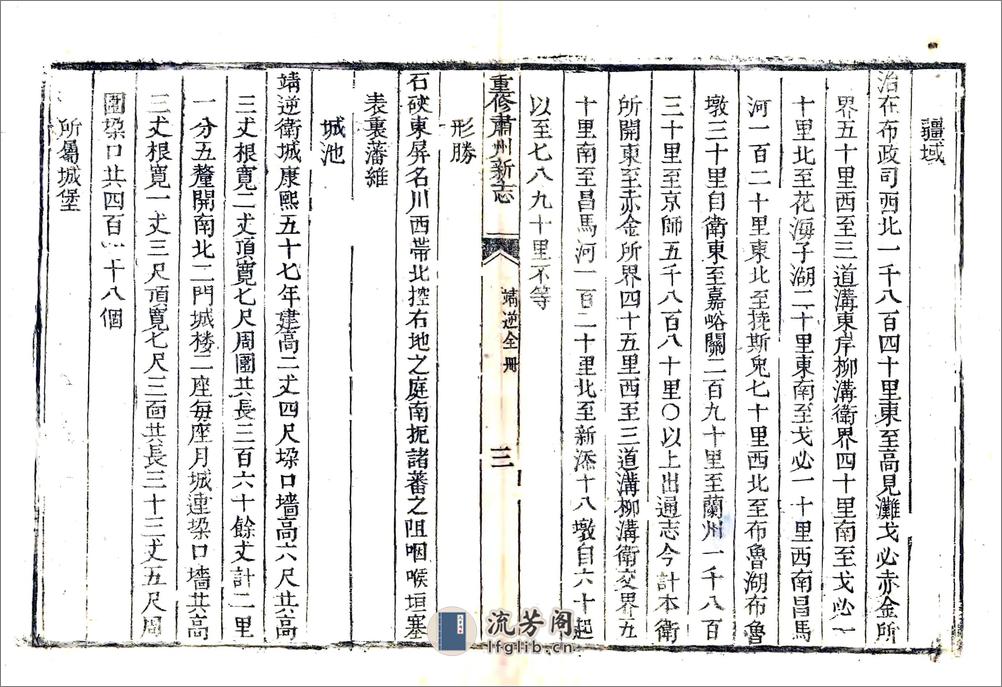 疆域
治在布政司西北一千八百四十里東至高見灘戈必赤金所
界五十里西至三道溝東岸柳溝衛界四十里南至戈必一
十里北至花海子湖二十里東南至戈必一十里西南昌馬
河一百二十里東北至撓斯兒七十里西北至布魯湖布魯
墩三十里自衛東至嘉峪關二百九十里至蘭州一千八百
三十里至京師五千八百八十里〇以上出通志今計本衛
所開東至赤金所界四十五里西至三道溝柳溝衛交界五
十里南至昌馬河一百二十里北至新添十八墩自六十起
以至七八九十里不等
重修肅州新志
靖逆全册
三
形勝
石硤東屏名川西帶北控右地之庭南扼諸蕃之阻咽喉垣塞
表裏藩維
城池
靖逆衛城康熙五十七年建高二丈四尺垜口墻高六尺共高
三丈根寬二丈頂寬七尺周圍共長三百六十餘丈計二里
一分五釐開南北二門城楼二座每座月城連垜口墻共高
三丈根寬一丈三尺頂寬七尺三面共長三十三丈五尺周
圍垜口共四百十八個
所屬城堡
流芳阁
lfglib.cn